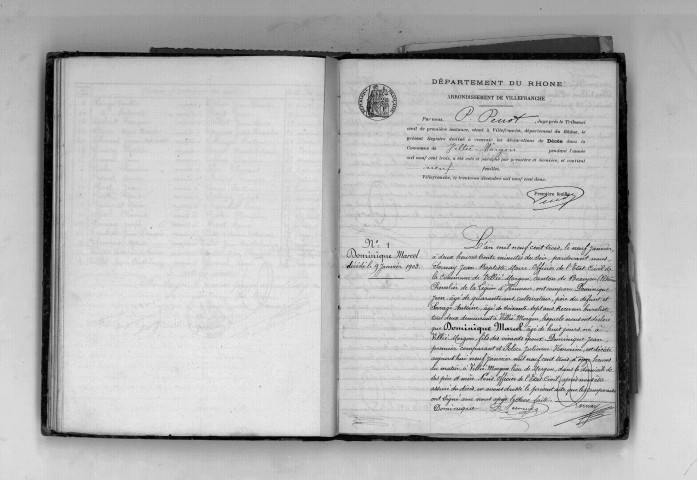 DÉPARTEMENT DU RHONE
ARRONDISSEMENT DE VILLEFRANCHE
Par nous, P. Penot, Juge près le Tribunal
civil de première instance, séant à Villefranche, département du Rhône, le
présent Registre destiné à recevoir les déclarations de Décès dans la
Commune de Villié-Morgon pendant l'année
mil neuf cent trois, a été coté et paraphé par première et dernière, et contient
neuf feuilles.
Villefranche, le décembre mil neuf cent deux.
Première feuille
N° 1
Dominique Marcel
décédé le 9 Janvier 1903
L'an mil neuf cent trois, le neuf Janvier,
à deux heures trente minutes du soir, pardevant nous,
Jean Baptiste Maire Officier de l'Etat Civil de
la Commune de Villié-Morgon, canton de Beaujeu (Rhône)
Chevalier de la Légion d'Honneur, ont comparu Dominique
Jean, âgé de quarante ans, cultivateur, père du défunt et
Antoine, âgé de soixante sept ans Receveur buraliste
tous deux demeurant à Villié-Morgon, lesquels nous ont déclaré
que Dominique Marcel âgé de huit jours, né à
Villié-Morgon, fils des vivants époux Dominique Jean
premier comparant et Julienne est décédé
aujourd'hui neuf Janvier mil neuf cent trois à heures
du matin à Villié-Morgon lieu de Morgon, dans le domicile de
ses père et mère. Nous Officier de l'Etat Civil, après nous être
assuré du décès, en avons dressé le présent acte que les comparants
ont signé avec nous après lecture faite.
Dominique